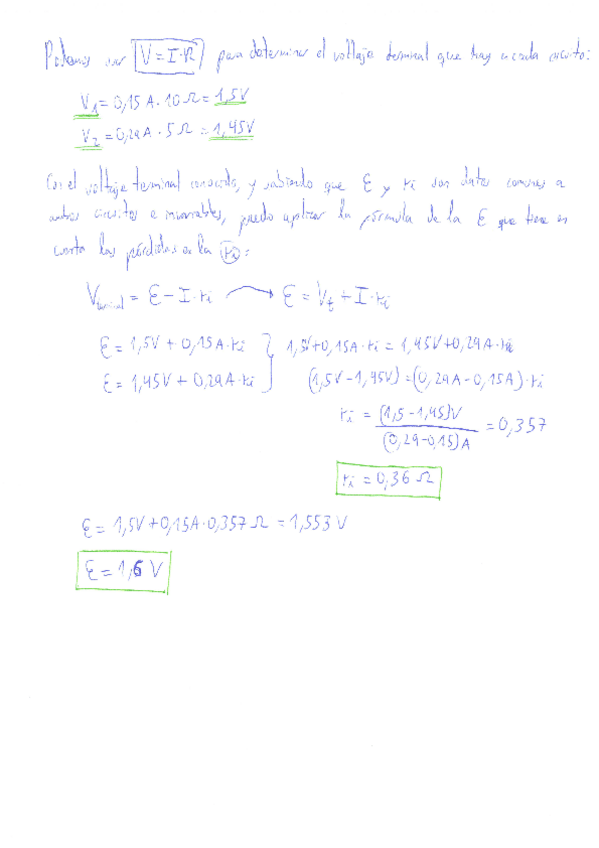 Podemos usar V = I·R para determinar el voltaje terminal que hay en cada circuito:
V₁ = 0,15 A · 10 Ω = 1,5 V
V₂ = 0,29 A · 5 Ω = 1,45 V
Con el voltaje terminal conocido, y sabiendo que ε y ri son datos comunes a
ambos circuitos e invariables, puedo aplicar la fórmula de la ε que tiene en
cuenta las pérdidas en la ri:
Vterminal = ε - I·ri → ε = Vt + I·ri
ε = 1,5V + 0,15A·ri } 1,5V + 0,15A·ri = 1,45V + 0,29A·ri
ε = 1,45V + 0,29A·ri (1,5V - 1,45V) = (0,29A - 0,15A)·ri
ri = (1,5 - 1,45)V / (0,29 - 0,15)A = 0,357
ri = 0,36 Ω
ε = 1,5V + 0,15A·0,357 Ω = 1,553 V
ε = 1,6 V